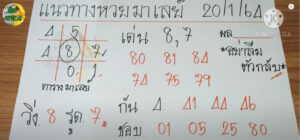 แนวทางหวยมาเลย์ 20/1/64
4 5
4 8 7
0 1
ตารางมาเลย์
เด่น 8,7
80 81 84
74 75 79
ผล
*อย่าลืม
ตัวกลับ*
วิ่ง 8 รูด 7
กัน 4 41 44 46
ชอบ 01 05 25 80